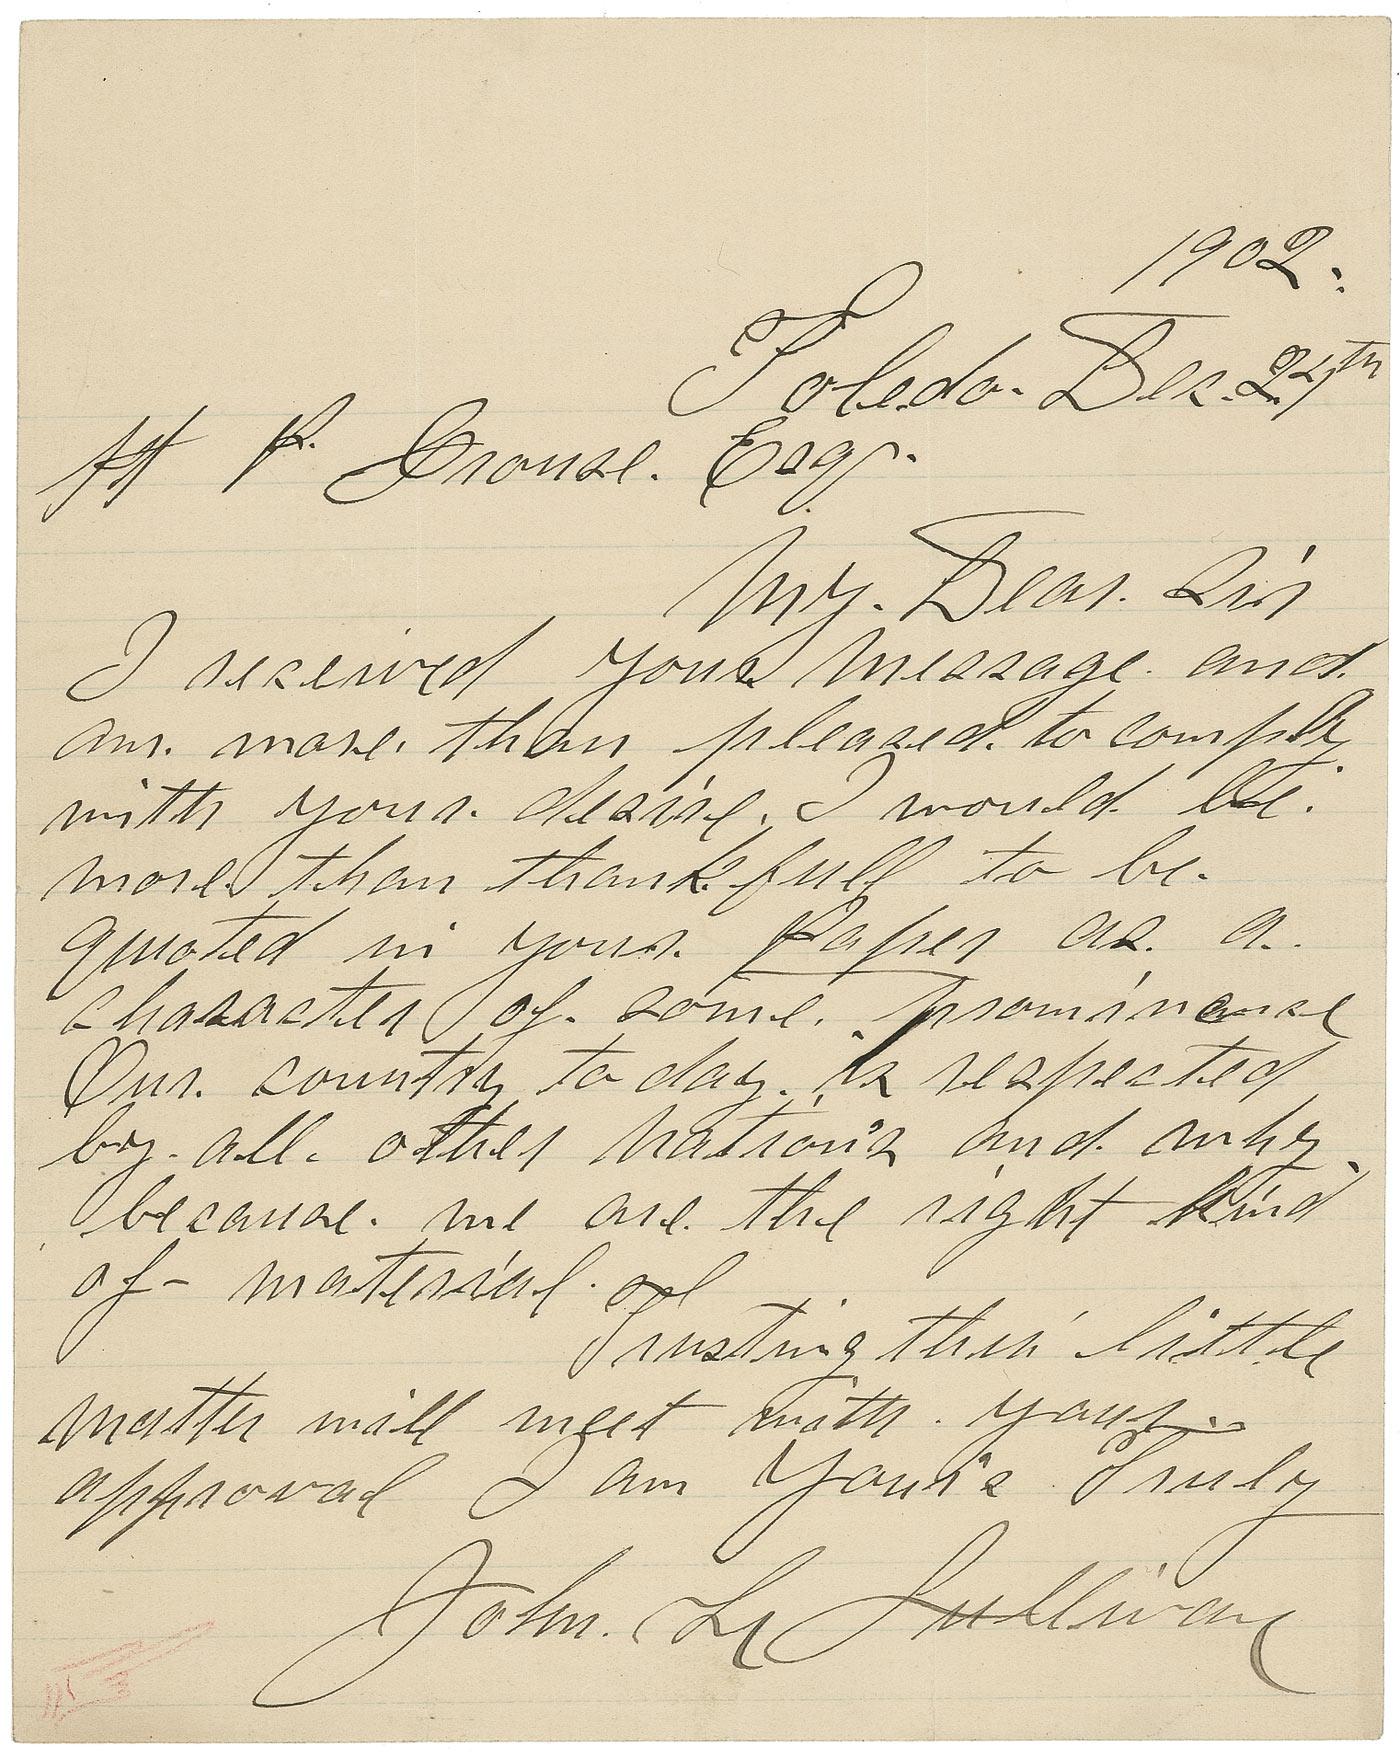 1902.
Toledo. Dec. 24th
P. Crouse. Esqr.
My. Dear. Sir
I received your Message. and.
am. more. than pleased. to comply
with your. desire. I would. be.
more. than thankfull to be.
quoted in your. Paper as. a.
character of. some. prominence
Our. country to day. is respected
by. all. other Nation's and. why.
because. we are. the right kind
of - material.
Trusting this little
matter will meet with. your.
approval I am Your's Truly
John. L Sullivan